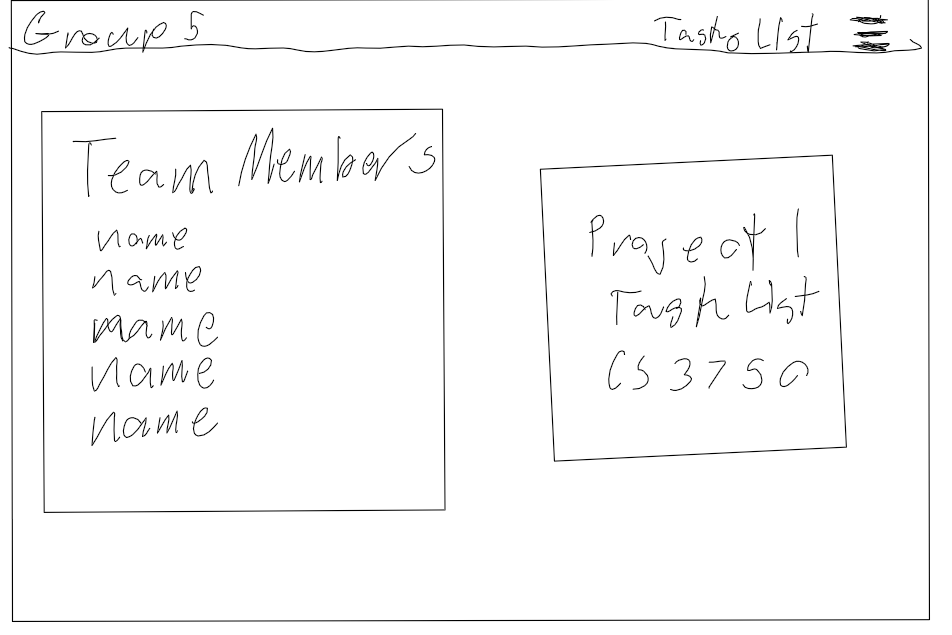 Group 5
Task List
Team Members
name
name
name
name
name
Project 1
Task List
CS 3750